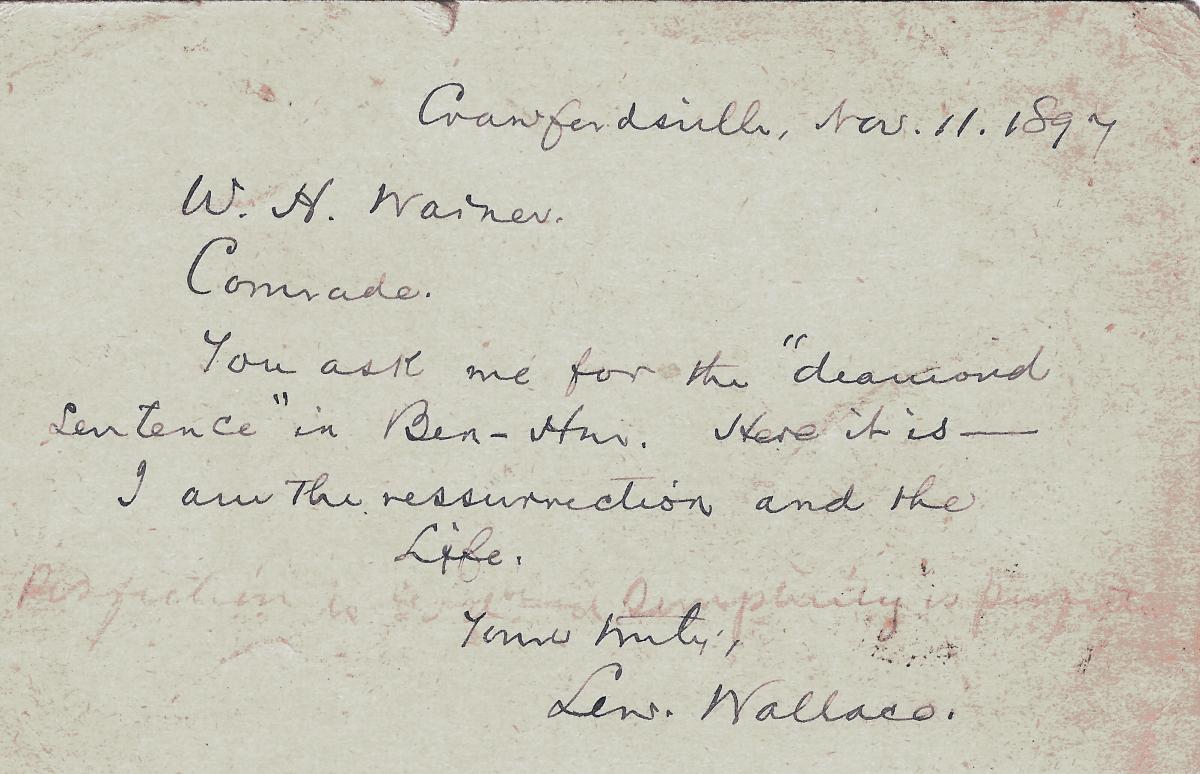 Crawfordsville, Nov. 11. 1897
W. H. Wainer.
Comrade.
You ask me for the "diamond
sentence" in Ben-Hur. Here it is —
I am the ressurrection and the
Life.
Perfection is Simplicity is
Yours truly,
Lew. Wallace.